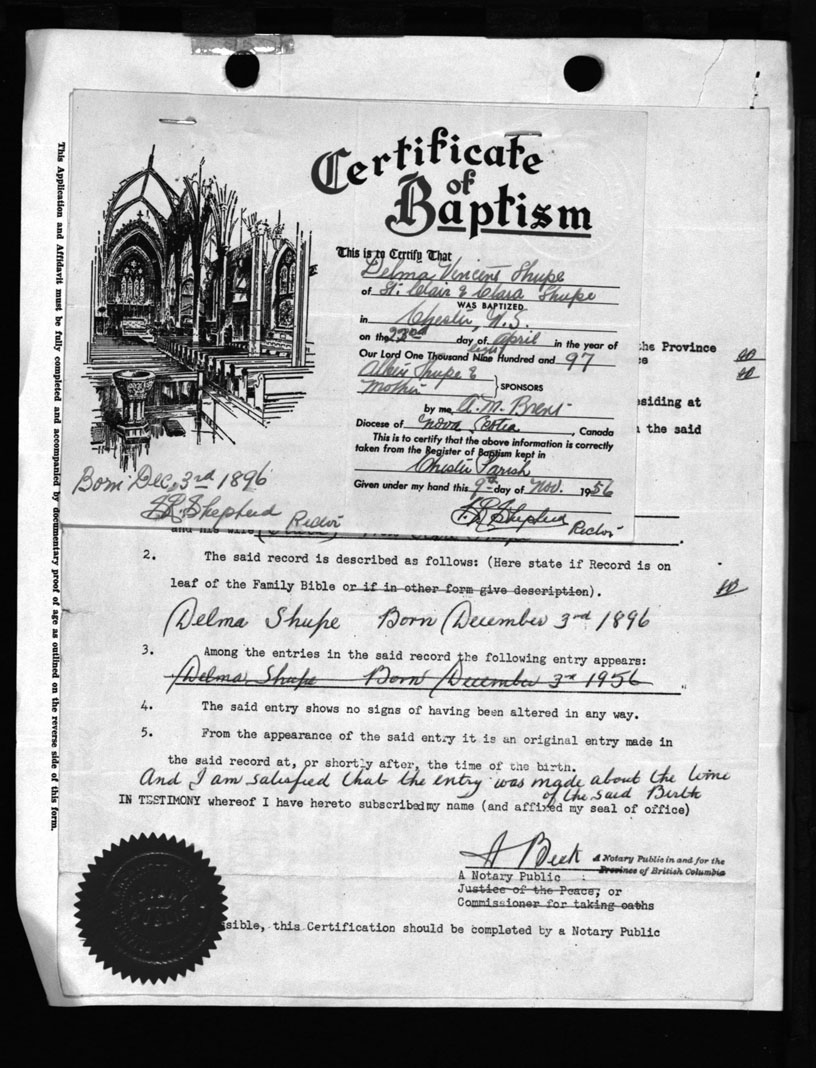 Certificate
of
Baptism
This is to Certify That
Delma Vincent Shupe
of St. Clair & Clara Shupe
WAS BAPTIZED
in Chester, N.S.
on the 22nd day of April in the year of
eight
Our Lord One Thousand Nine Hundred and 97
Shupe &
Mother } SPONSORS
by me, A. M. Brent
Diocese of Nova Scotia, Canada
This is to certify that the above information is correctly
taken from the Register of Baptism kept in
Chester Parish
Given under my hand this 9th day of Nov. 1956
Shepherd Rector
Born Dec. 3rd 1896
Shepherd Rector
the Province
residing at
the said
and his wife
2. The said record is described as follows: (Here state if Record is on
leaf of the Family Bible or if in other form give description).
Delma Shupe Born December 3rd 1896
3. Among the entries in the said record the following entry appears:
Delma Shupe Born December 3rd 1956
4. The said entry shows no signs of having been altered in any way.
5. From the appearance of the said entry it is an original entry made in
the said record at, or shortly after, the time of the birth.
And I am satisfied that the entry was made about the time
of the said Birth
IN TESTIMONY whereof I have hereto subscribed my name (and affixed my seal of office)
A Beek A Notary Public in and for the
Province of British Columbia
A Notary Public
Justice of the Peace, or
Commissioner for taking oaths
sible, this Certification should be completed by a Notary Public
This Application and Affidavit must be fully completed and accompanied by documentary proof of age as outlined on the reverse side of this form.